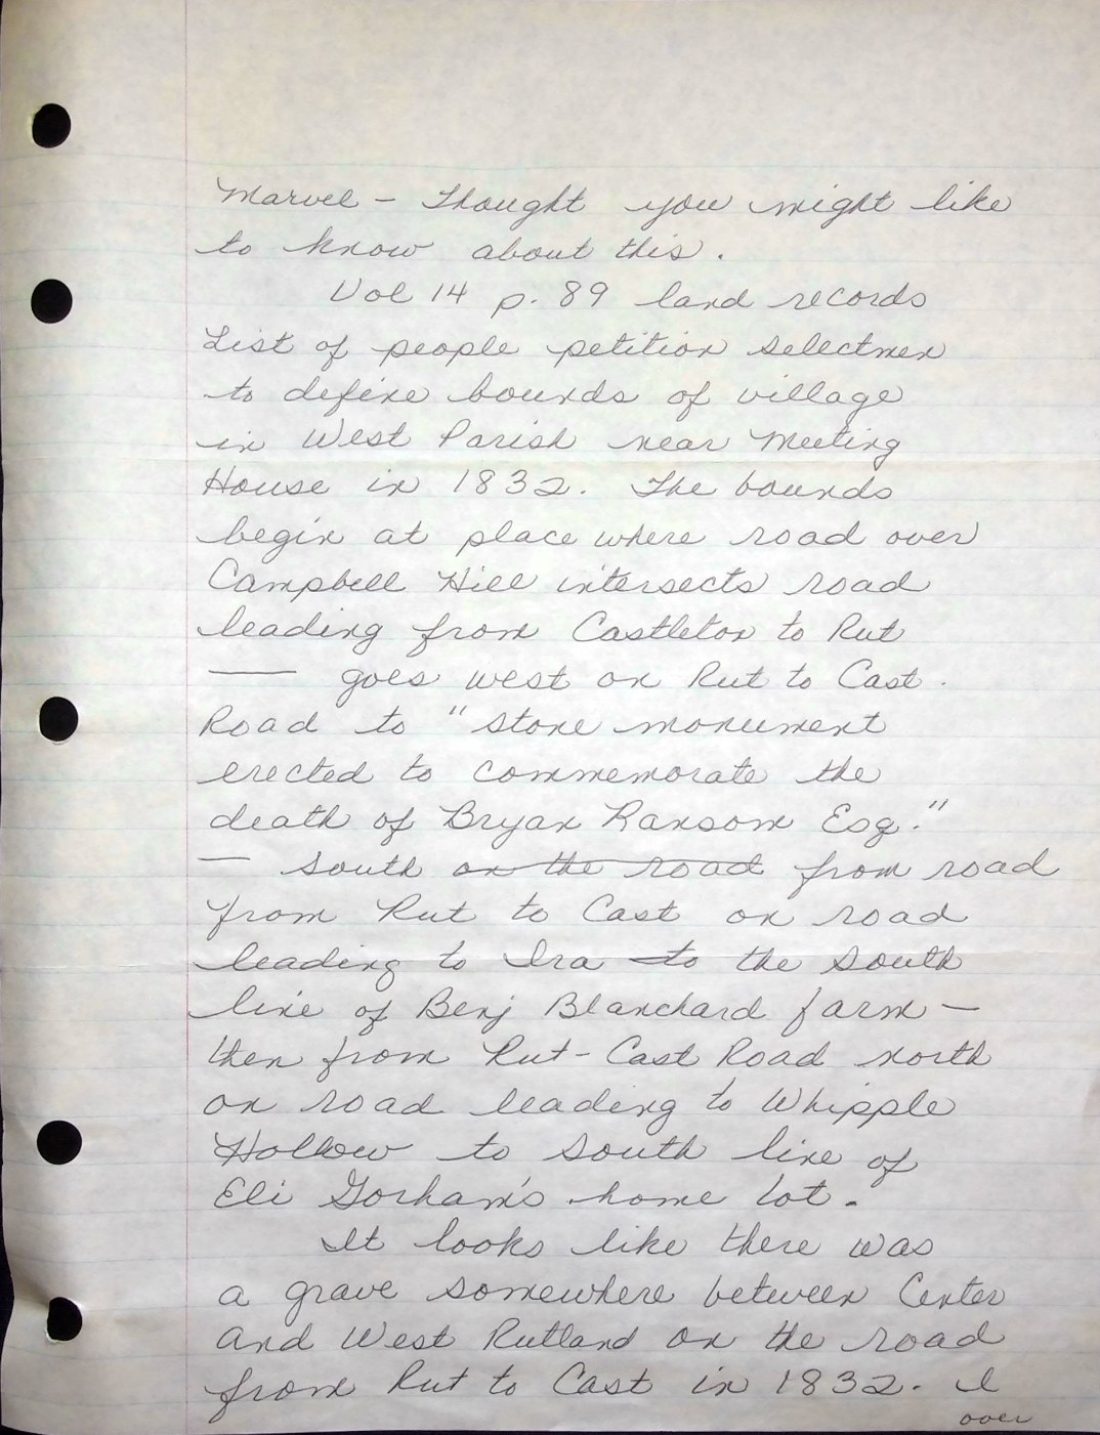 Marvel - Thought you might like
to know about this.
Vol 14 p. 89 land records
List of people petition selectmen
to define bounds of village
in West Parish near Meeting
House in 1832. The bounds
begin at place where road over
Campbell Hill intersects road
leading from Castleton to Rut
— goes west on Rut to Cast.
Road to "stone monument
erected to commemorate the
death of Bryan Ransom Esq."
— south on the road from road
from Rut to Cast on road
leading to Ira to the south
line of Benj Blanchard farm -
then from Rut-Cast Road north
on road leading to Whipple
Hollow to south line of
Eli Gorham's home lot.
It looks like there was
a grave somewhere between Center
and West Rutland on the road
from Rut to Cast in 1832. I
over